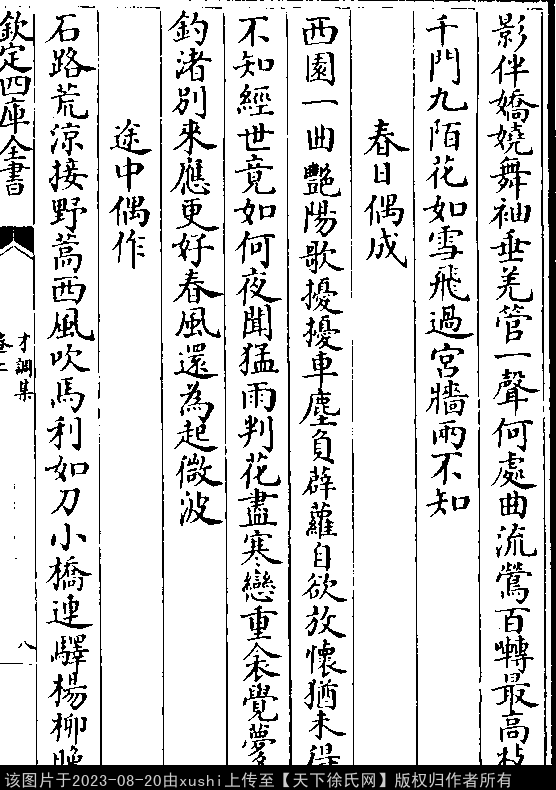 影伴嬌嬈舞袖垂羌管一聲何處曲流鶯百囀最高
千門九陌花如雪飛過宮牆兩不知
春日偶成
西園一曲艷陽歌擾擾車塵負薜蘿自欲放懷猶未得
不知經世竟如何夜聞猛雨判花盡寒戀重衾覺夢
釣渚別來應更好春風還為起微波
途中偶作
石路荒涼接野蒿西風吹馬利如刀小橋連驛楊柳晚
欽定四庫全書
才調集
卷二
八
该图片于2023-08-20由xushi上传至【天下徐氏网】版权归作者所有